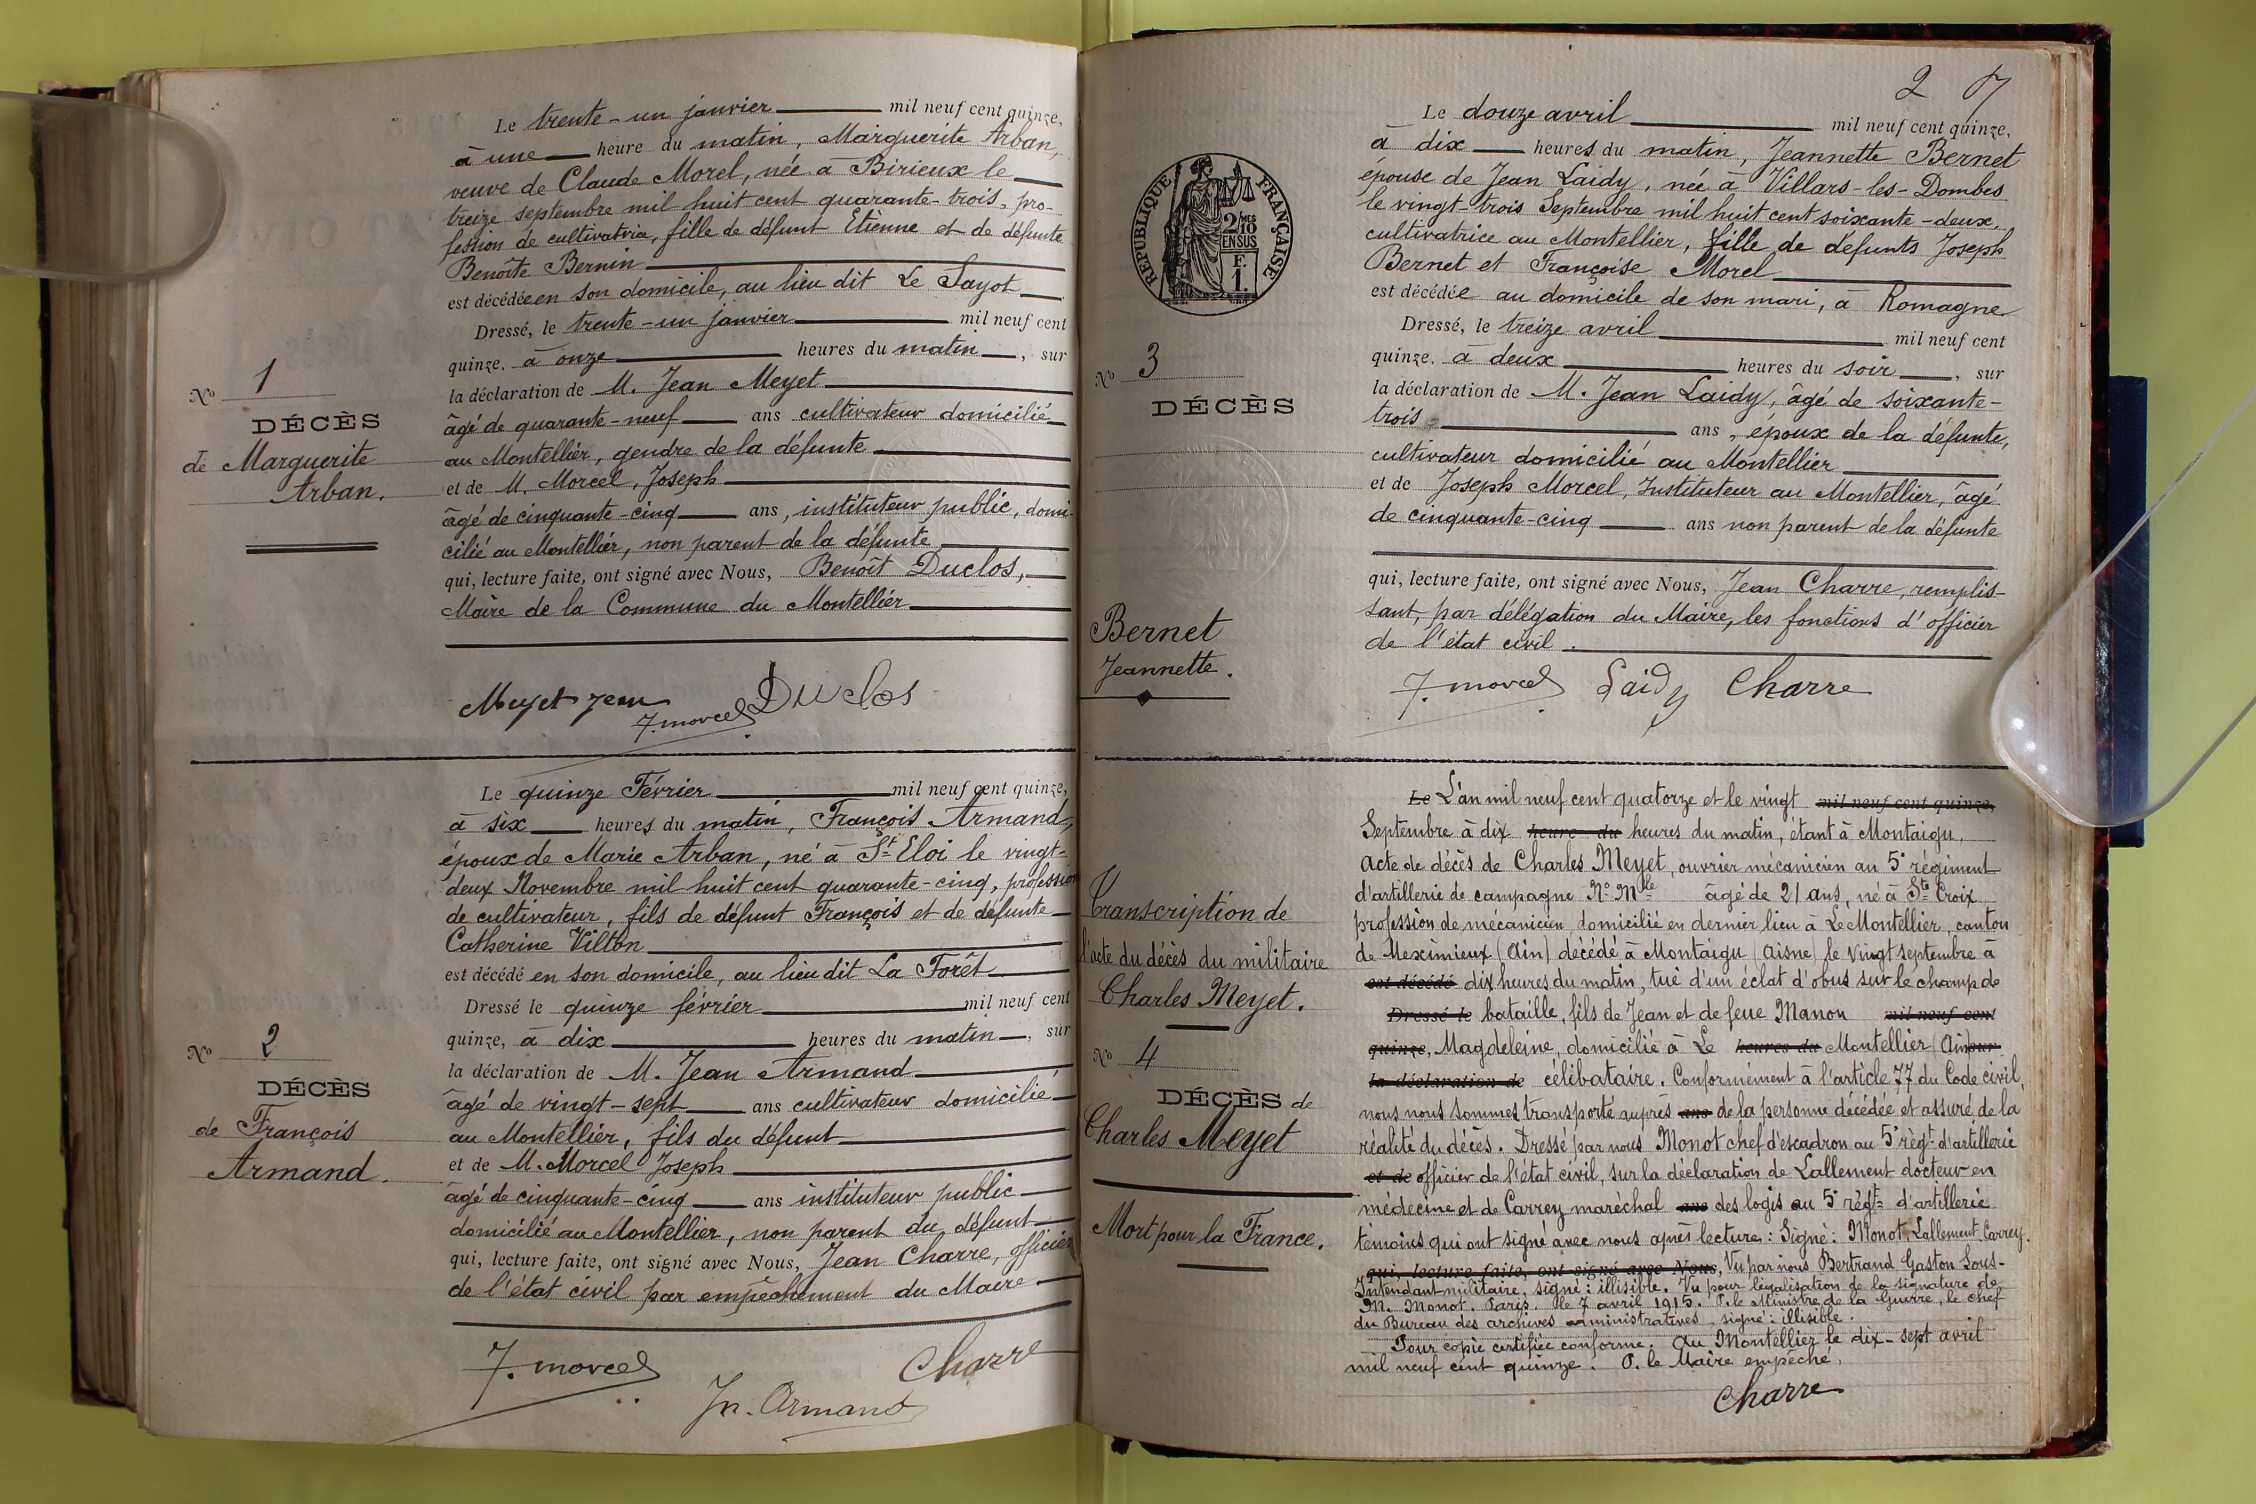 Le trente-un janvier mil neuf cent quinze,
à une heure du matin, Marguerite Arban,
veuve de Claude Morel, née à Birieux le
treize septembre mil huit cent quarante-trois, pro-
fession de cultivatrice, fille de défunt Etienne et de défunte
Benoîte Bernin
est décédée en son domicile, au lieu dit Le Sayot
Dressé, le trente-un janvier mil neuf cent
quinze, à onze heures du matin, sur
la déclaration de M. Jean Meyet
âgé de quarante-neuf ans cultivateur domicilié
au Montellier, gendre de la défunte
et de M. Morcel, Joseph
âgé de cinquante-cinq ans, instituteur public, domi-
cilié au Montellier, non parent de la défunte
qui, lecture faite, ont signé avec Nous, Benoît Duclos,
Maire de la Commune du Montellier
No 1
DÉCÈS
de Marguerite
Arban.
Meyet Jean
J. morcel Duclos
Le quinze Février mil neuf cent quinze,
à six heures du matin, François Armand,
époux de Marie Arban, né à St Eloi le vingt-
deux Novembre mil huit cent quarante-cinq, profession
de cultivateur, fils de défunt François et de défunte
Catherine Vilton
est décédé en son domicile, au lieu dit La Forêt
Dressé le quinze février mil neuf cent
quinze, à dix heures du matin, sur
la déclaration de M. Jean Armand
âgé de vingt-sept ans cultivateur domicilié
au Montellier, fils du défunt
et de M. Morcel Joseph
âgé de cinquante-cinq ans instituteur public
domicilié au Montellier, non parent du défunt
qui, lecture faite, ont signé avec Nous, Jean Charre, officier
de l'état civil par empêchement du Maire
No 2
DÉCÈS
de François
Armand.
J. morcel Charre
Jn. Armand
2 7
RÉPUBLIQUE FRANÇAISE
2/10
EN SUS
F.
1.
Le douze avril mil neuf cent quinze,
à dix heures du matin, Jeannette Bernet
épouse de Jean Laidy, née à Villars-les-Dombes
le vingt-trois Septembre mil huit cent soixante-deux,
cultivatrice au Montellier, fille de défunts Joseph
Bernet et Françoise Morel
est décédée au domicile de son mari, à Romagne
Dressé, le treize avril mil neuf cent
quinze, à deux heures du soir, sur
la déclaration de M. Jean Laidy, âgé de soixante-
trois ans, époux de la défunte,
cultivateur domicilié au Montellier
et de Joseph Morcel, Instituteur au Montellier, âgé
de cinquante-cinq ans non parent de la défunte
qui, lecture faite, ont signé avec Nous, Jean Charre, remplis-
sant, par délégation du Maire, les fonctions d'officier
de l'état civil.
No 3
DÉCÈS
Bernet
Jeannette.
J. morcel Laidy Charre
Le L'an mil neuf cent quatorze et le vingt mil neuf cent quinze,
Septembre à dix heure du heures du matin, étant à Montaigu.
Acte de décès de Charles Meyet, ouvrier mécanicien au 5e régiment
d'artillerie de campagne No Mle âgé de 21 ans, né à Ste Croix
profession de mécanicien, domicilié en dernier lieu à Le Montellier, canton
de Meximieux (Ain) décédé à Montaigu (Aisne) le vingt septembre à
est décédé dix heures du matin, tué d'un éclat d'obus sur le champ de
Dressé le bataille, fils de Jean et de feue Manon mil neuf cent
quinze, Magdeleine, domicilié à Le heures du Montellier (Ain) sur
la déclaration de célibataire. Conformément à l'article 77 du Code civil,
nous nous sommes transporté auprès ans de la personne décédée et assuré de la
réalité du décès. Dressé par nous Monot chef d'escadron au 5e règt d'artillerie
et de officier de l'état civil, sur la déclaration de Lallement docteur en
médecine et de Carrey maréchal ans des logis au 5e règt d'artillerie
témoins qui ont signé avec nous après lecture: Signé: Monot, Lallement, Carrey.
qui, lecture faite, ont signé avec Nous, Vu par nous Bertrand Gaston Sous-
Intendant militaire, signé: illisible. Vu pour légalisation de la signature de
M. Monot. Paris, le 7 avril 1915. P. le Ministre de la Guerre, le chef
du Bureau des archives administratives, signé: illisible.
Pour copie certifiée conforme. Au Montellier le dix-sept avril
mil neuf cent quinze. P. le Maire empêché,
Charre
Transcription de
l'acte du décès du militaire
Charles Meyet.
No 4
DÉCÈS de
Charles Meyet
Mort pour la France.